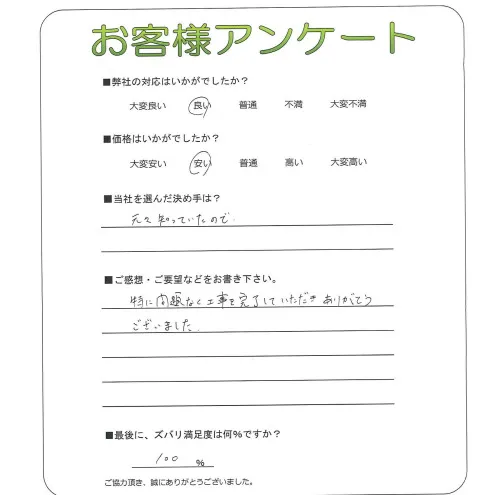 お客様アンケート
■弊社の対応はいかがでしたか？
大変良い 良い 普通 不満 大変不満
■価格はいかがでしたか？
大変安い 安い 普通 高い 大変高い
■当社を選んだ決め手は？
元々知っていたので
■ご感想・ご要望などをお書き下さい。
特に問題なく工事を完了していただきありがとう
ございました
■最後に、ズバリ満足度は何％ですか？
100 ％
ご協力頂き、誠にありがとうございました。